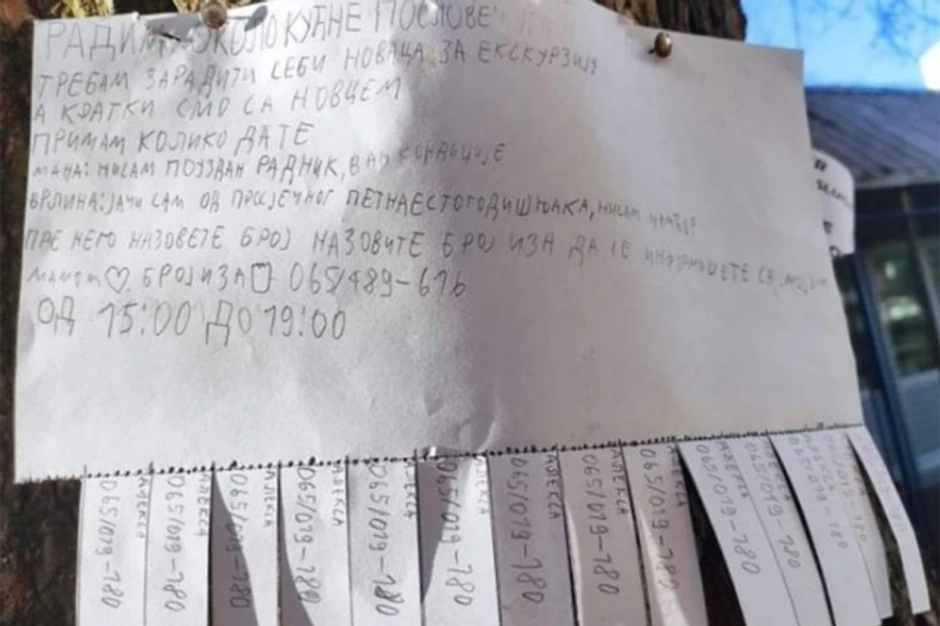 РАДИМ ОКОЛОКУЋНЕ ПОСЛОВЕ
ТРЕБАМ ЗАРАДИТИ СЕБИ НОВАЦА ЗА ЕКСКУРЗИЈУ
А КРАТКИ СМО СА НОВЦЕМ
ПРИМАМ КОЛИКО ДАТЕ
МАНА: НИСАМ ПОУЗДАН РАДНИК, ВАН КОНДИЦИЈЕ
ВРЛИНА: ЈАЧИ САМ ОД ПРОСЈЕЧНОГ ПЕТНАЕСТОГОДИШЊАКА, НИСАМ
ПРЕ НЕГО НАЗОВЕТЕ БРОЈ НАЗОВИТЕ БРОЈ ИЗА ДА СЕ ИНФОРМИШЕТЕ СА
♡ БРОЈ ИЗА 065/489-616
ОД 15:00 ДО 19:00
АЛЕКСА
065/019-780
АЛЕКСА
065/019-780
АЛЕКСА
065/019-780
АЛЕКСА
065/019-780
АЛЕКСА
065/019-780
АЛЕКСА
065/019-780
АЛЕКСА
065/019-780
АЛЕКСА
065/019-780
АЛЕКСА
065/019-780
АЛЕКСА
065/019-780
АЛЕКСА
065/019-780